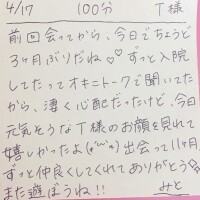 4/17 100分 T様
前回会ってから、今日でちょうど
3ヶ月ぶりだね♡♡ずっと入院
してたってオキニトークで聞いてた
から、凄く心配だったけど、今日
元気そうなT様のお顔を見れて
嬉しかったよ(*'ω'*)出会って11ヶ月
ずっと仲良くしてくれてありがとう♡
また遊ぼうね!!
みと